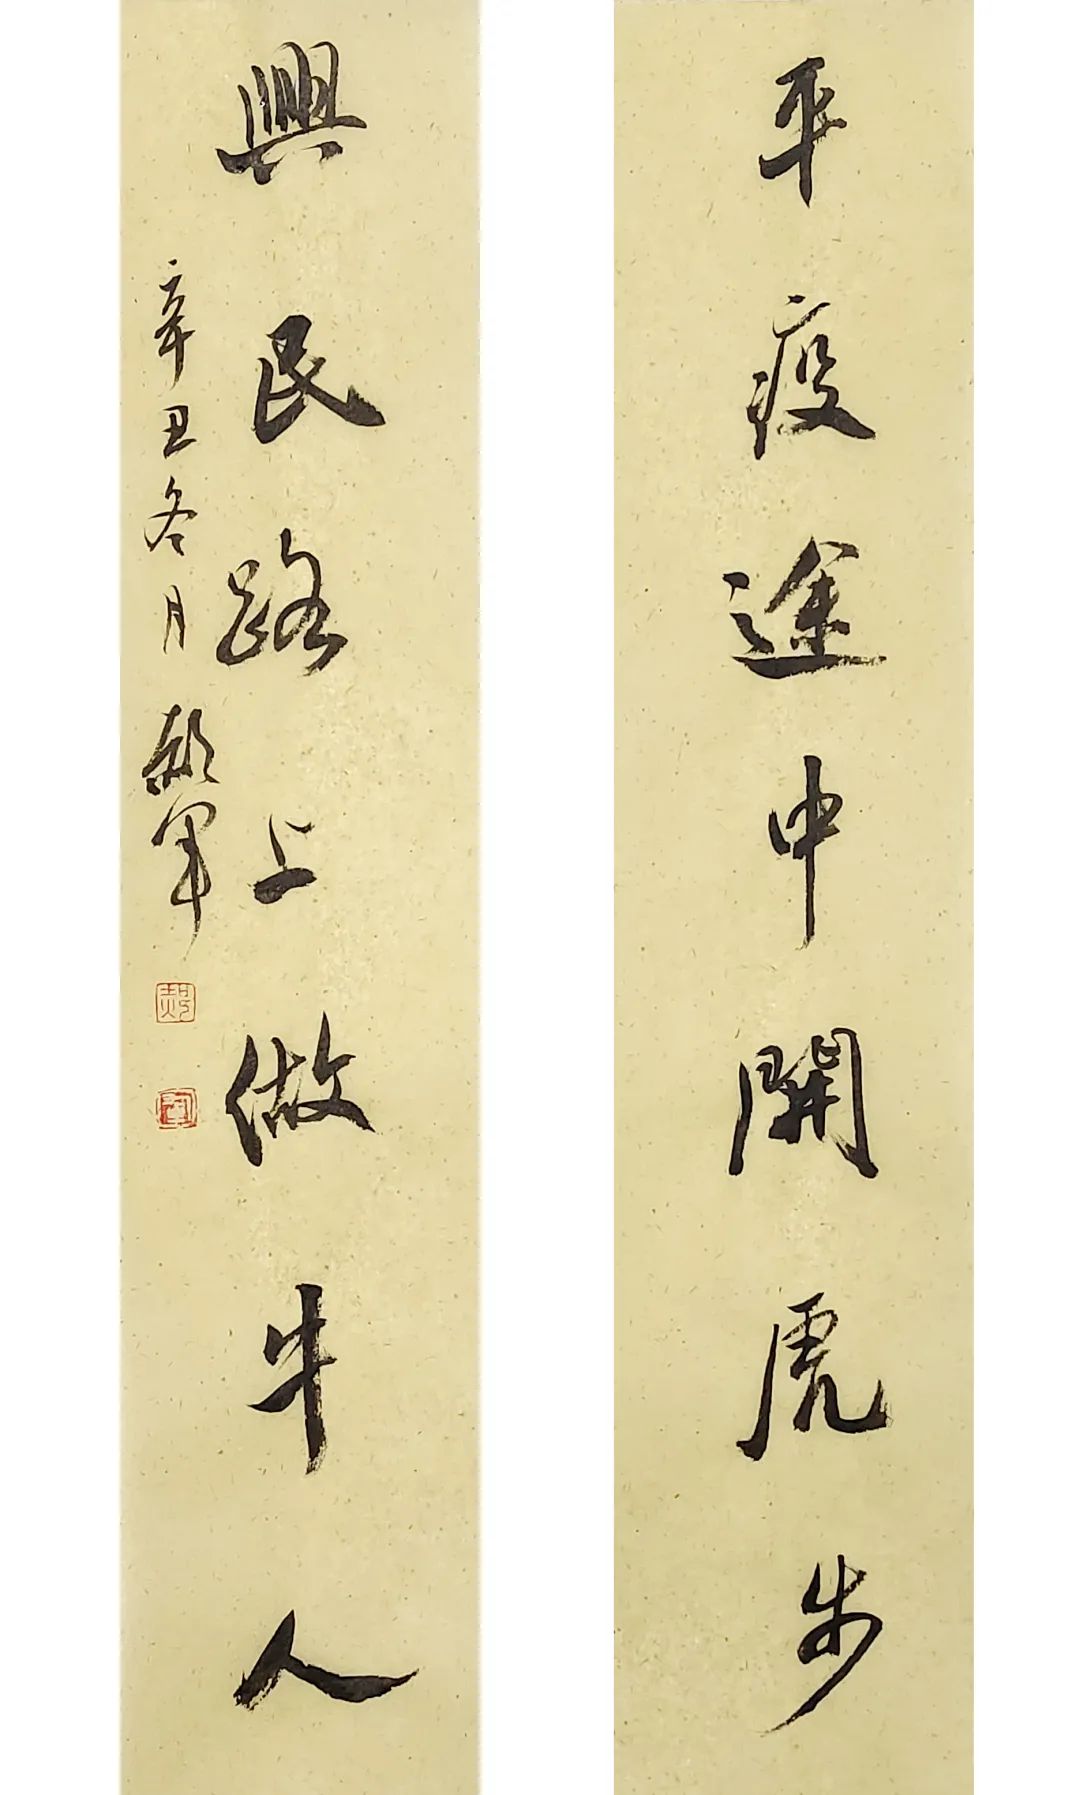 平疫途中開虎步
興民路上做牛人
辛丑冬月 郝軍
郝